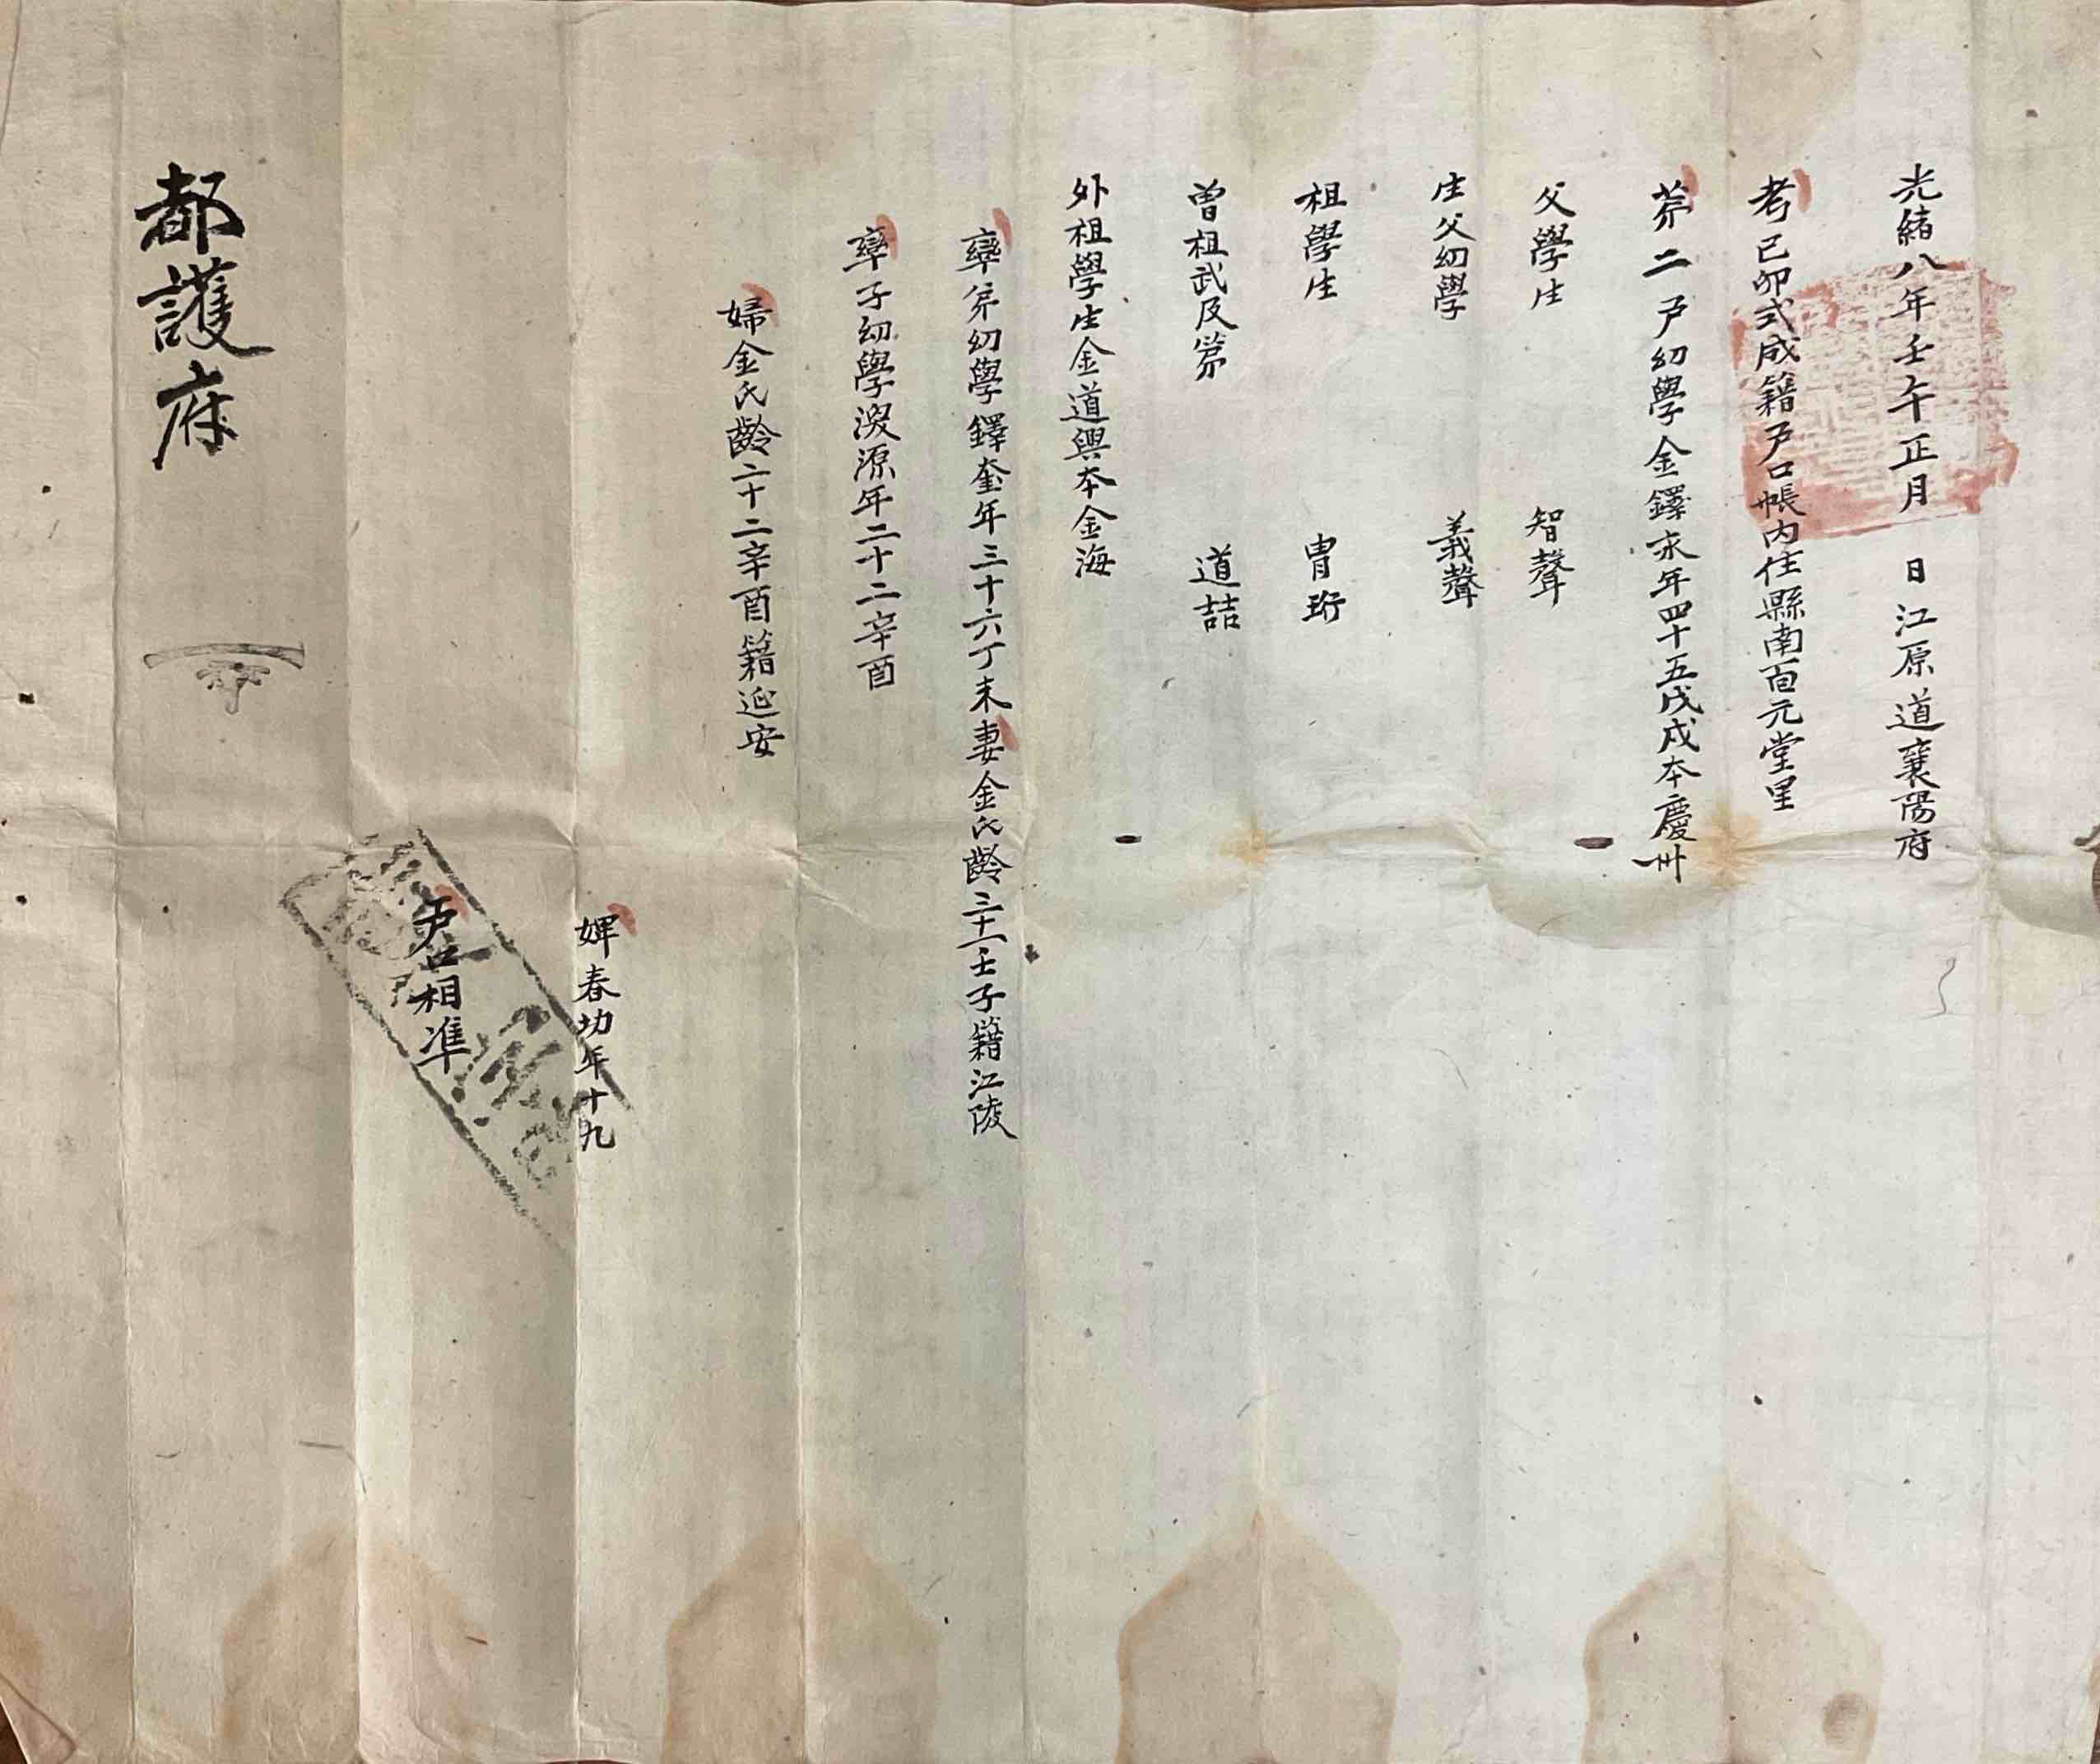 光緖八年壬午正月 日江原道襄陽府
考己卯式成籍戶口帳內住縣南面元堂里
第二戶幼學金鐸永年四十五戊戌本慶州
父學生 智聲
生父幼學 義聲
祖學生 胄珩
曾祖武及第 道喆
外祖學生金道興本金海
率弟幼學鐸奎年三十六丁未妻金氏齡三十一壬子籍江陵
率子幼學濙源年二十二辛酉
婦金氏齡二十二辛酉籍延安
婢春切年十九
戶口相準
都護府